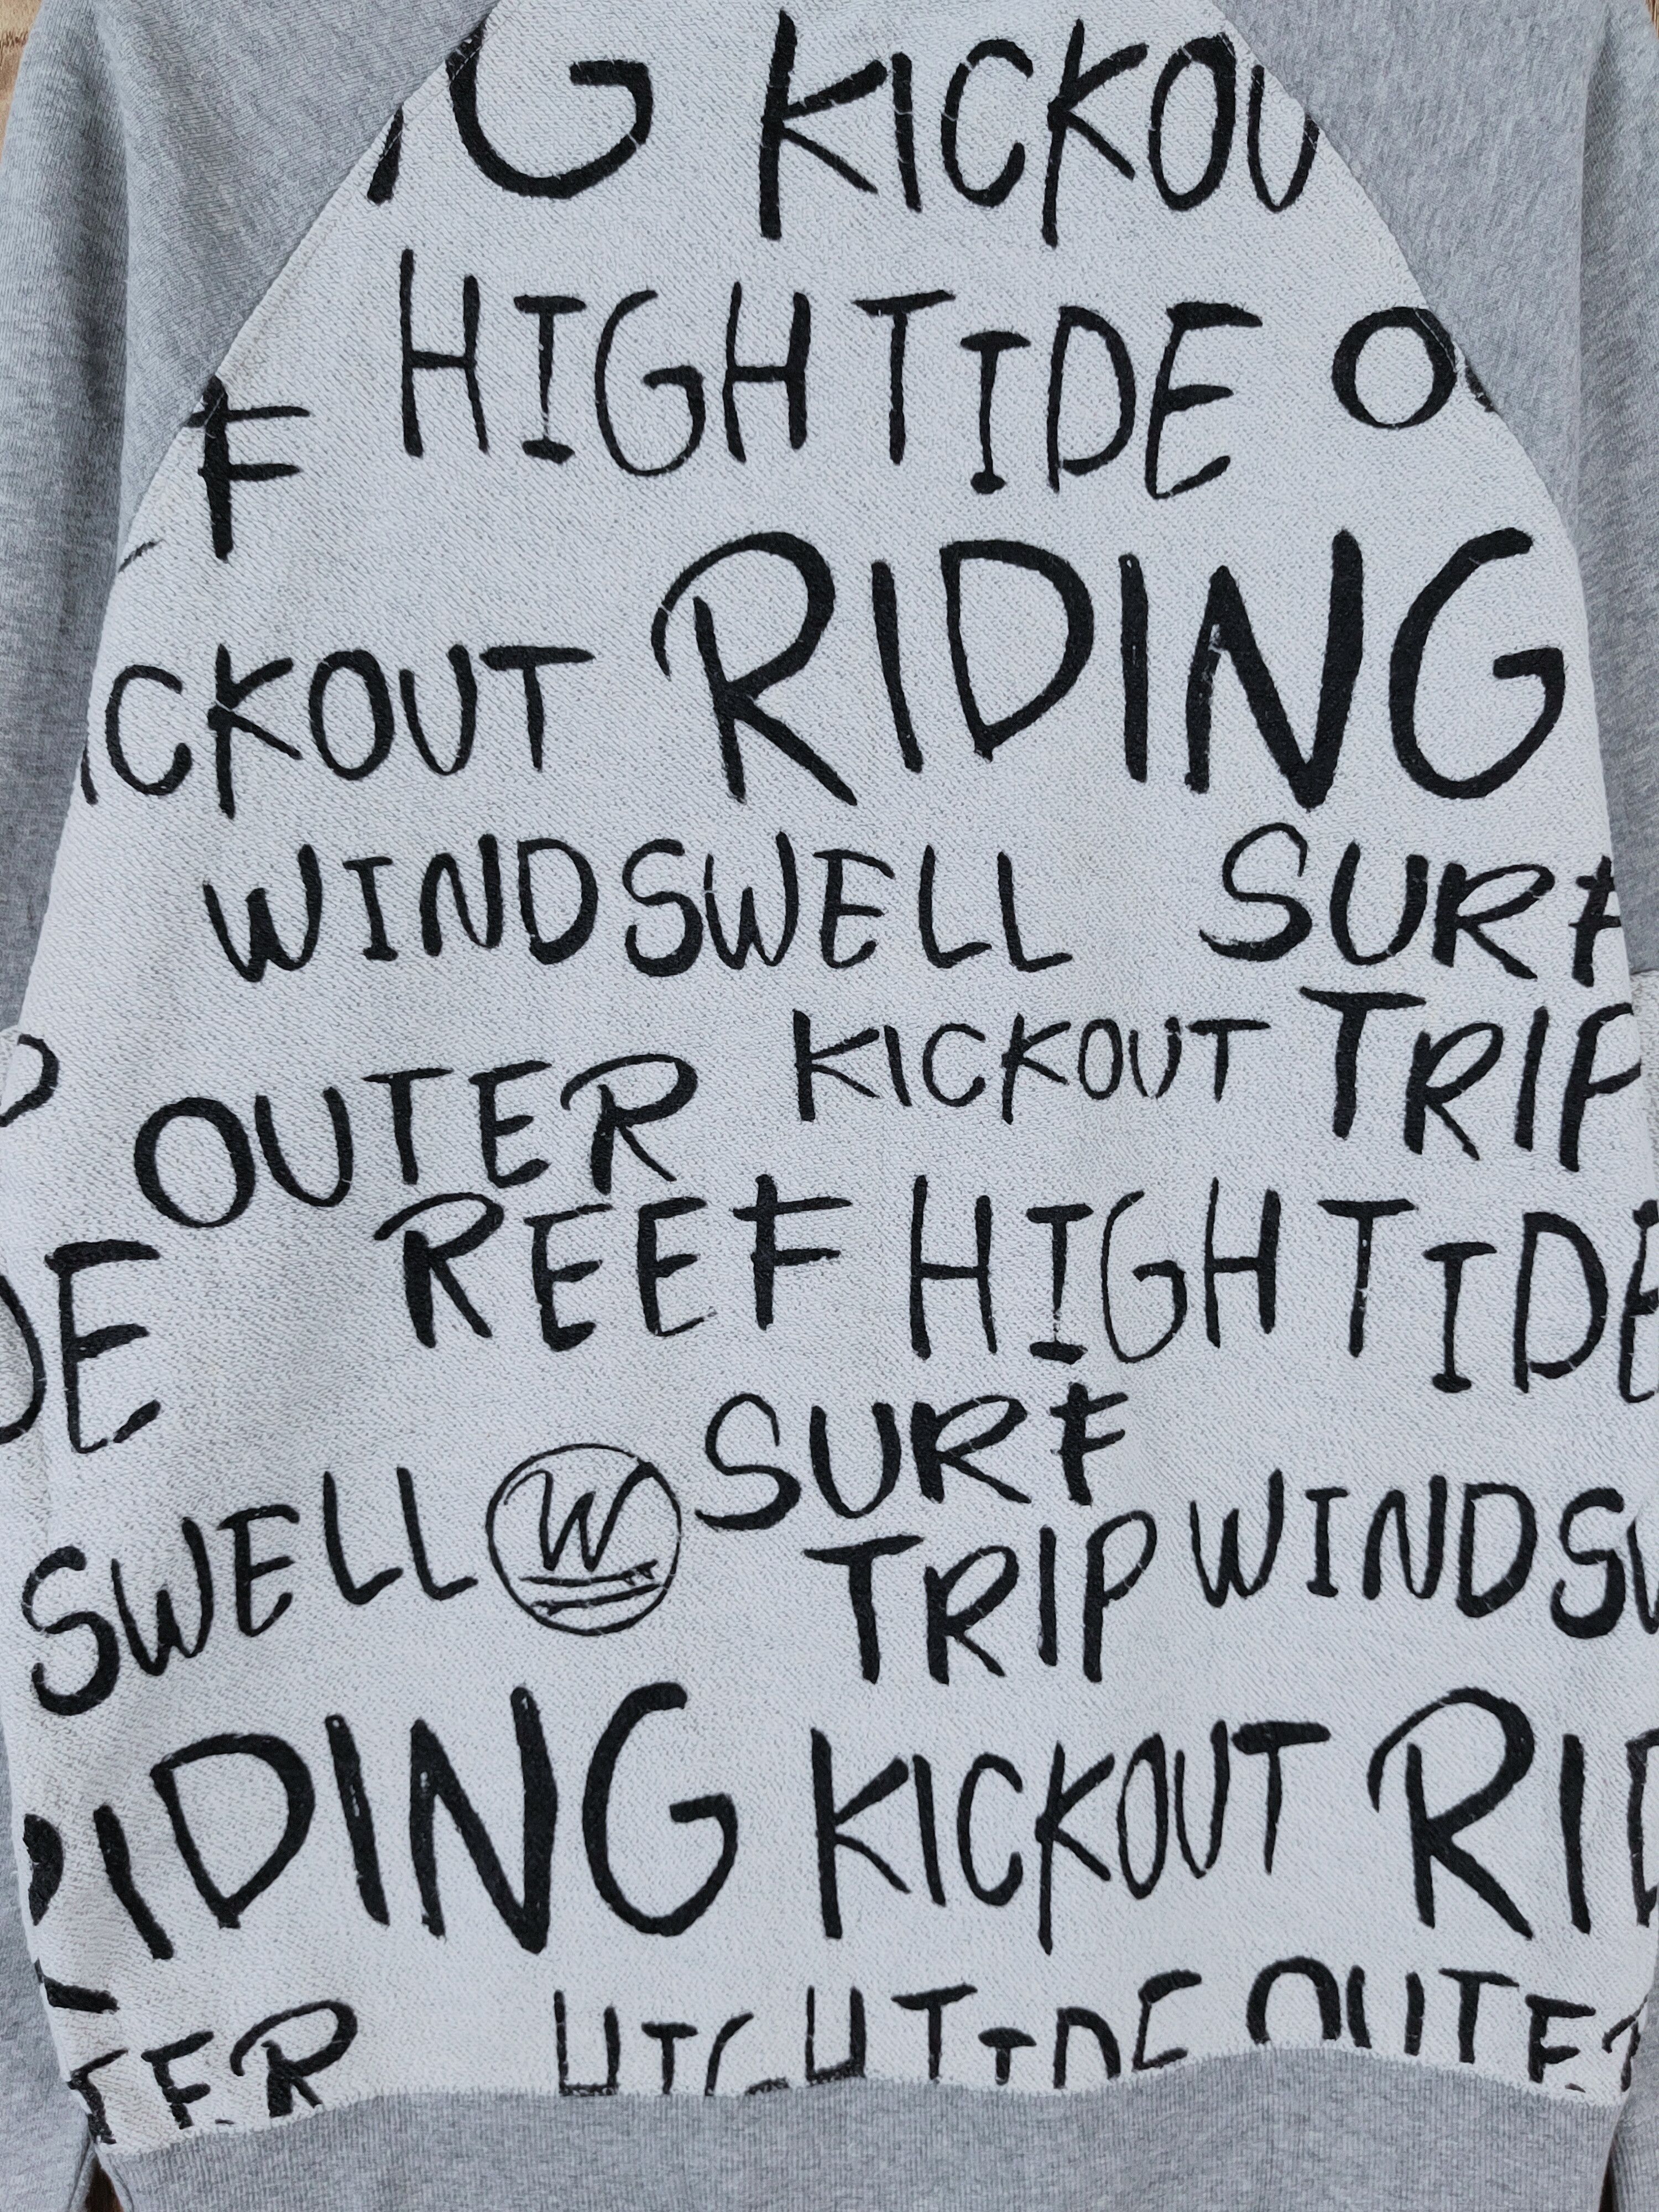 G KICKOU
HIGH TIDE O
F
ICKOUT RIDING
WINDSWELL SURF
OUTER KICKOUT TRIP
DE REEF HIGH TIDE
SWELL W SURF
TRIP WINDSW
RIDING KICKOUT RID
TER HIGH TIDE OUTER